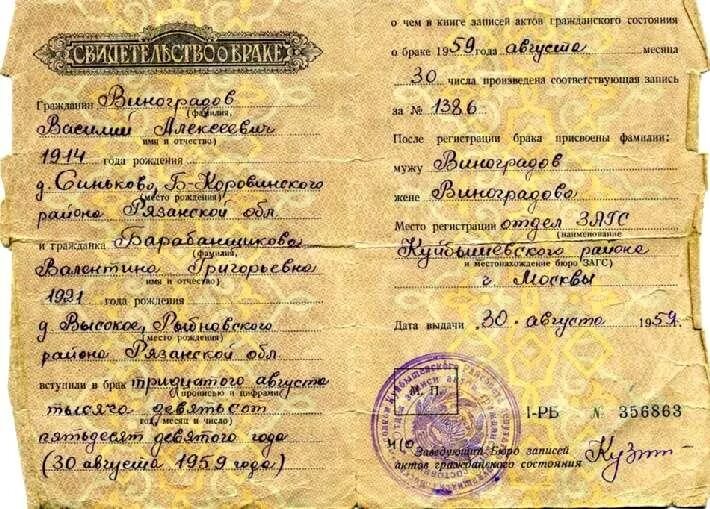 СВИДЕТЕЛЬСТВО О БРАКЕ
Гражданин Виноградов
(фамилия,
Василий Алексеевич
имя и отчество)
1914 года рождения
д. Синьково, Б-Коровинского
(место рождения)
района Рязанской обл.
и гражданка Барабанщикова
(фамилия,
Валентина Григорьевна
имя и отчество)
1921 года рождения
д. Высокое, Рыбновского
(место рождения)
района Рязанской обл
вступили в брак тридцатого августа
(прописью и цифрами
тысяча девятьсот
год, месяц и число)
пятьдесят девятого года
(30 августа 1959 года)
о чем в книге записей актов гражданского состояния
о браке 1959 года августа месяца
30 числа произведена соответствующая запись
за № 1386
После регистрации брака присвоены фамилии:
мужу Виноградов
жене Виноградова
Место регистрации отдел ЗАГС
(наименование
Куйбышевского района
и местонахождение бюро ЗАГС)
г Москвы
Дата выдачи 30 августа 1959.
М. П.
I-РБ № 356863
Заведующий Бюро записей
актов гражданского состояния